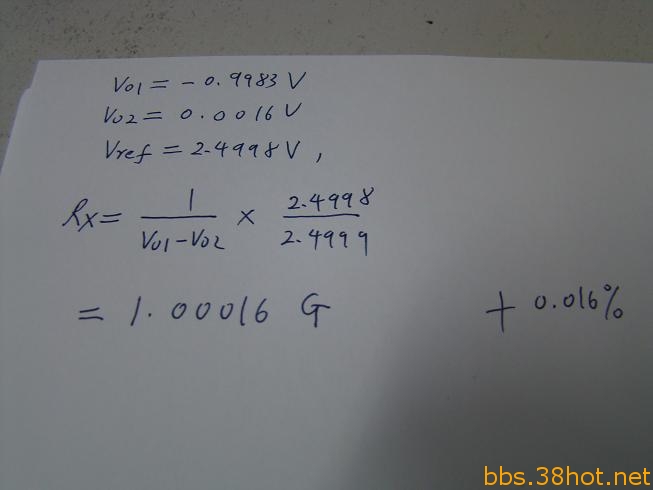 Vo1 = - 0.9983 V
Vo2 = 0.0016 V
Vref = 2.4998 V ,
Rx = 1 / (Vo1 - Vo2) × 2.4998 / 2.4999
= 1.00016 G + 0.016%
bbs.38hot.net